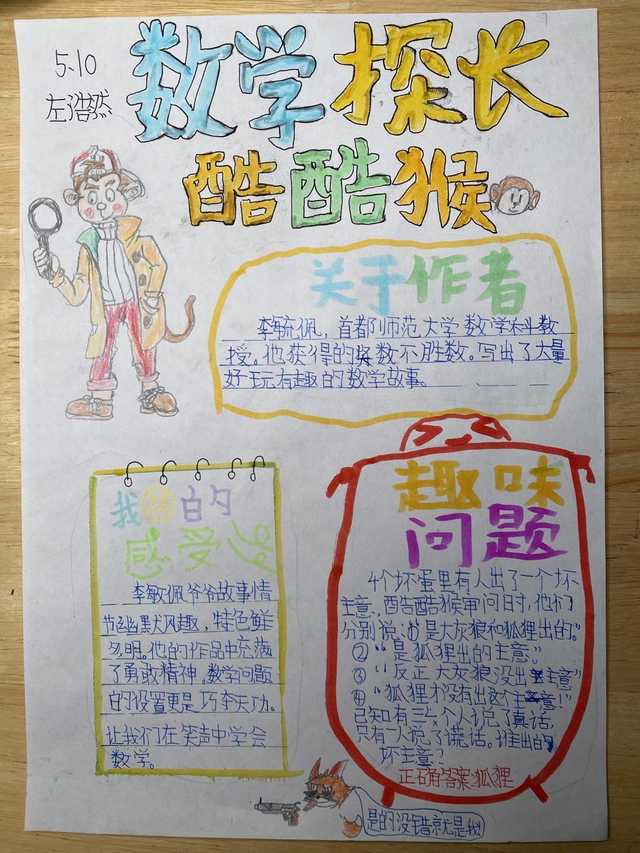 5.10
左浩然
数学探长
酷酷猴
关于作者
李毓佩，首都师范大学数学科教
授。他获得的奖数不胜数。写出了大量
好玩有趣的数学故事。
我的
感受
李毓佩爷爷故事情
节幽默风趣，特色鲜
多明。他的作品中充满
了勇敢精神，数学问题
的设置更是巧夺天功。
让我们在笑声中学会
数学。
趣味
问题
4个坏蛋里有人出了一个坏
主意，酷酷猴审问时，他们
分别说：①“是大灰狼和狐狸出的。”
②“是狐狸出的主意”
③“反正大灰狼没出主意”
④“狐狸才没有出这个主意！”
已知有三个人说了真话，
只有一人说了谎话。谁出的
坏主意？
正确答案：狐狸
是的没错就是我